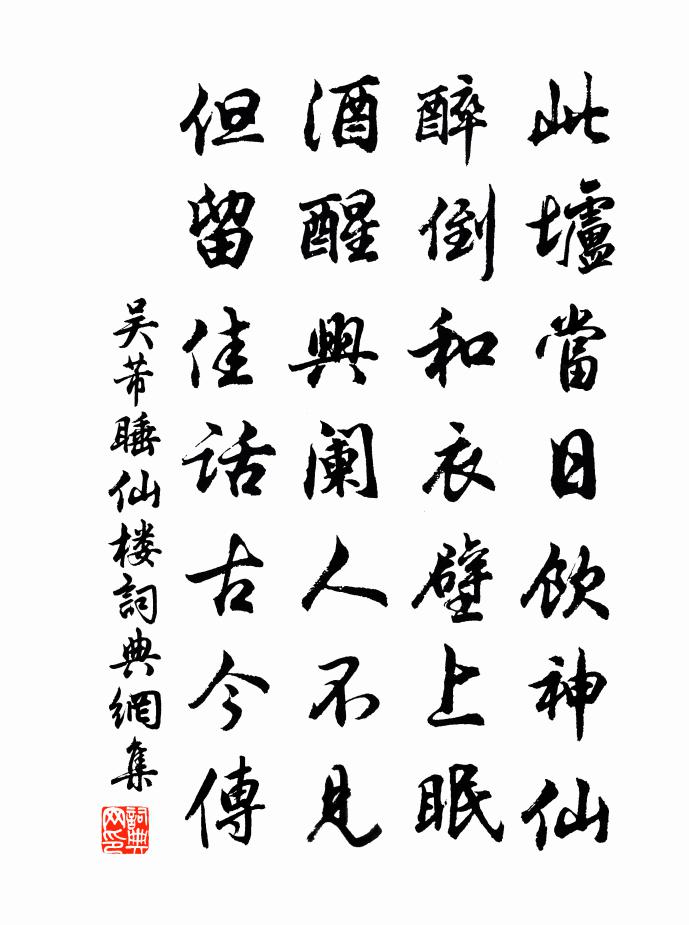 此壚當日飲神仙
醉倒和衣壁上眠
酒醒興阑人不見
但留佳话古今傳
吴芾睡仙楼詞典網集
詞典网印